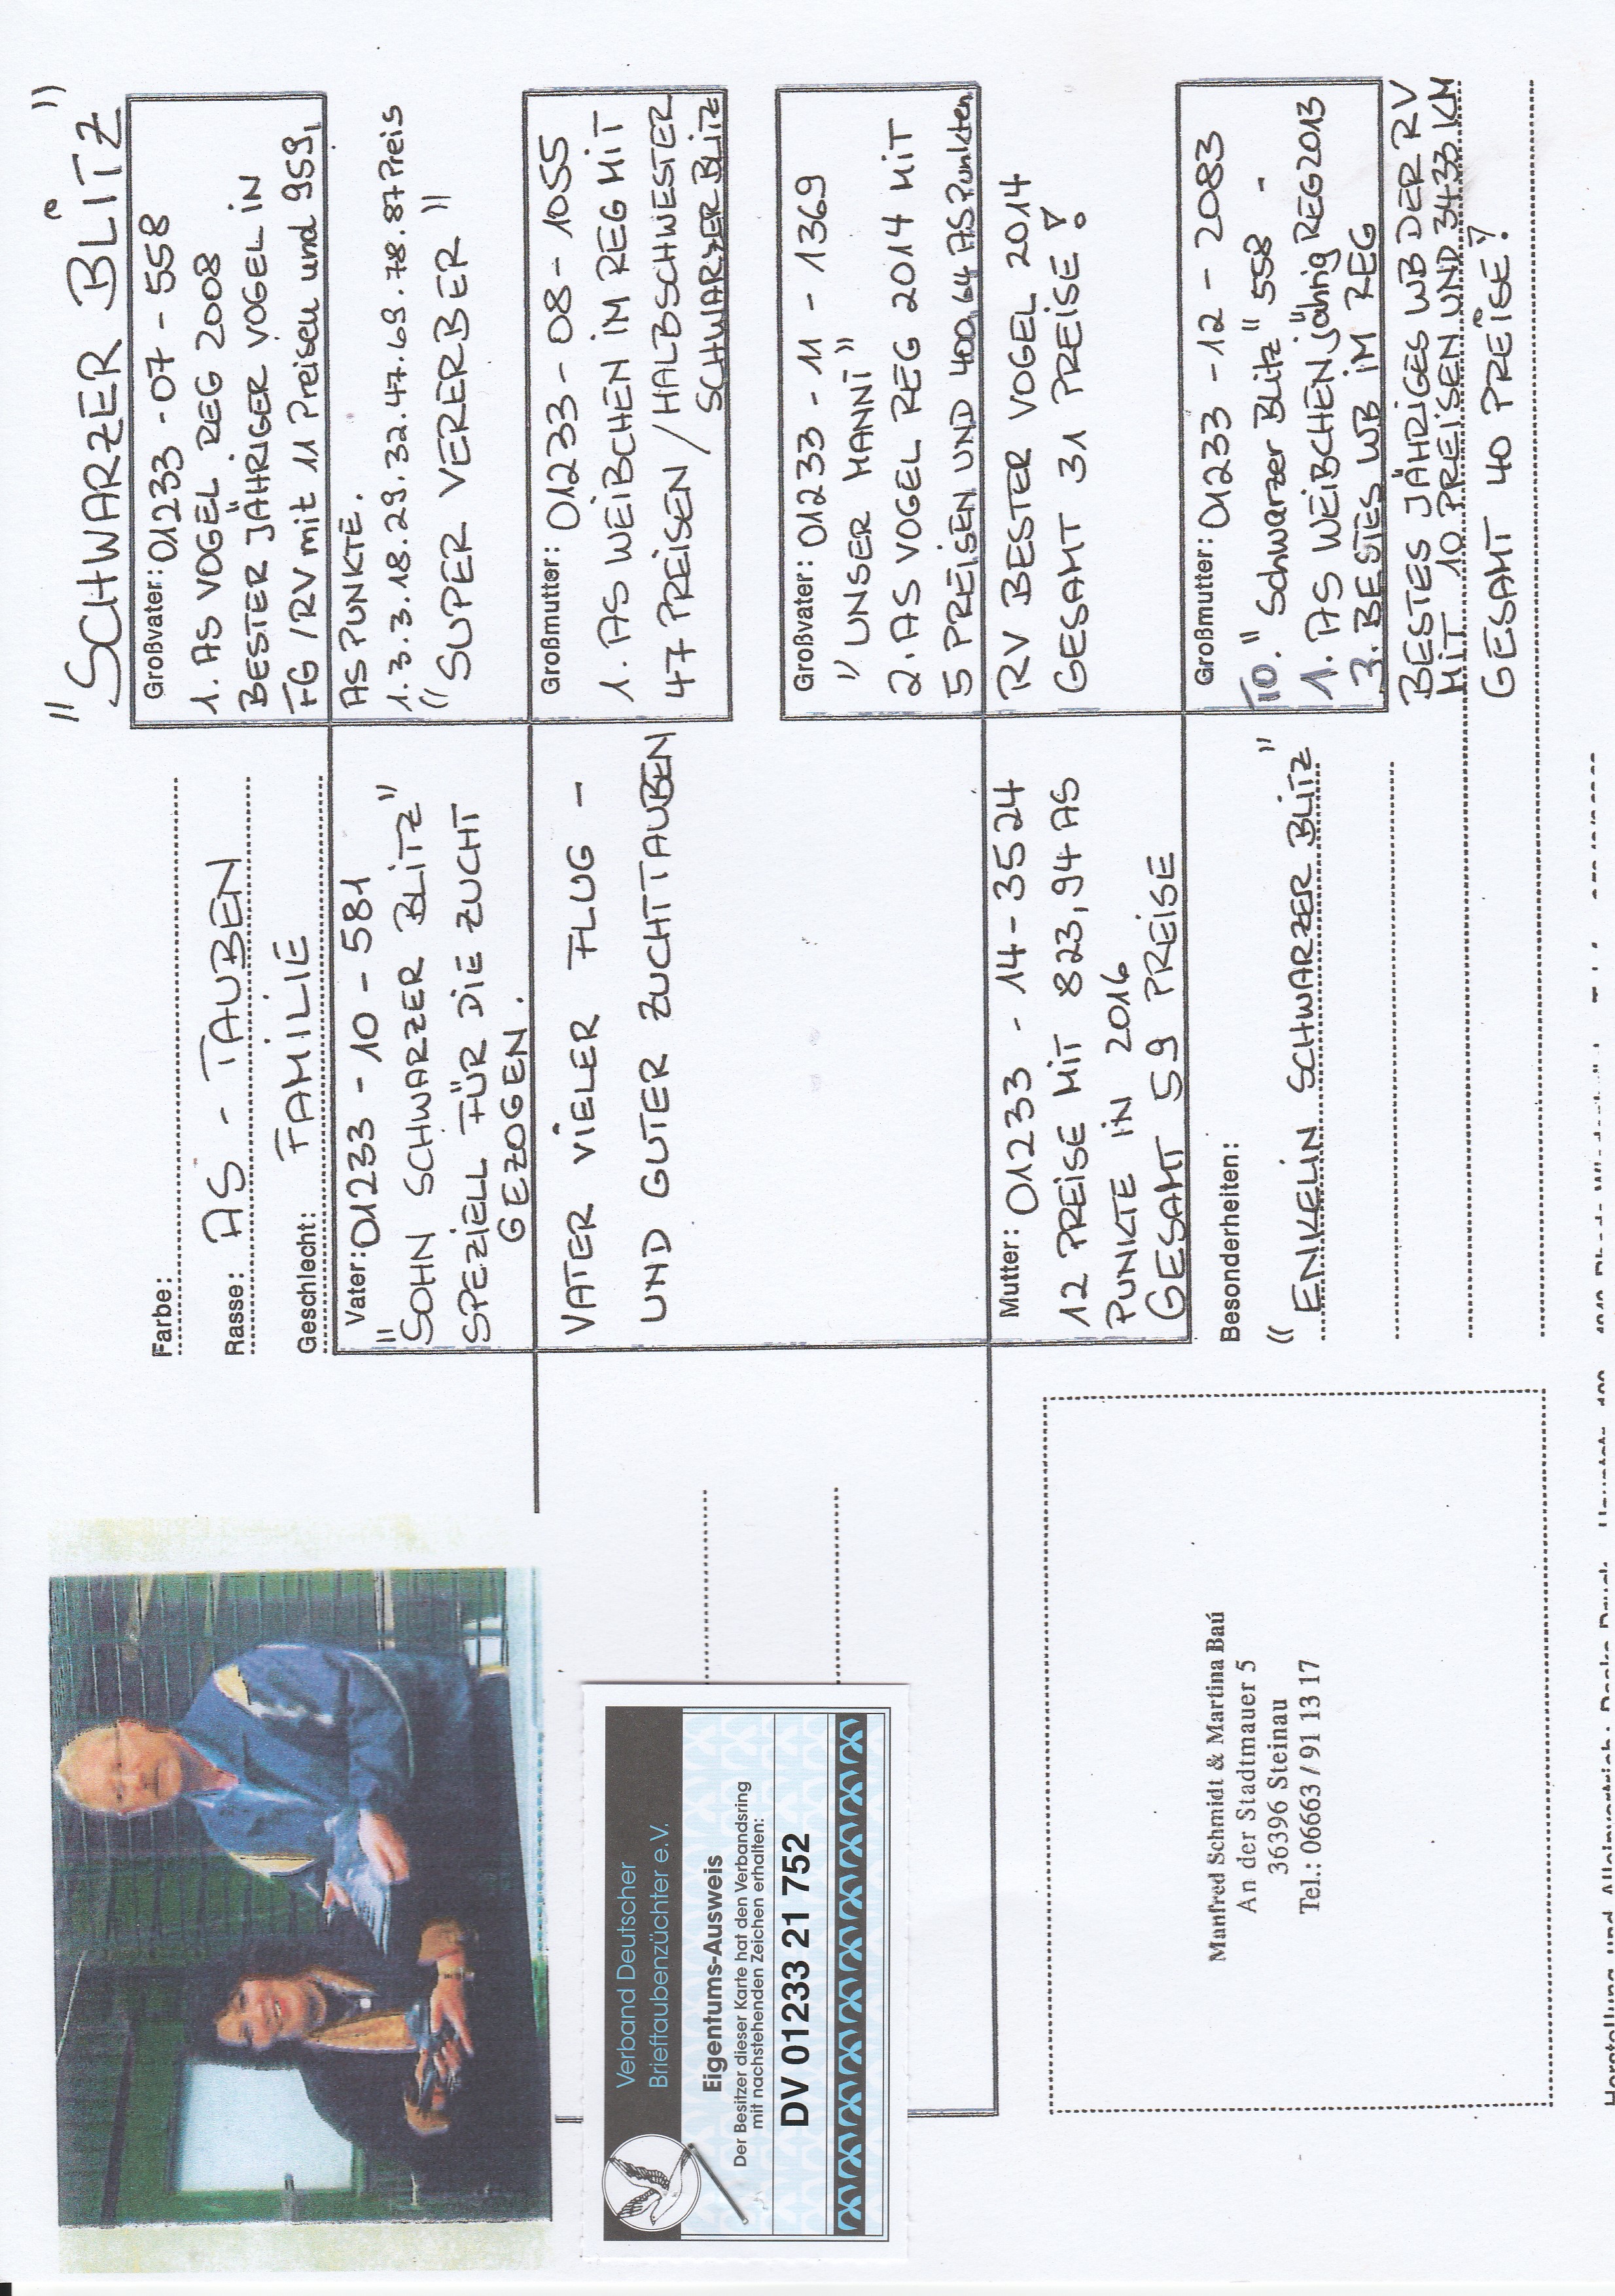 Verband Deutscher
Brieftaubenzüchter e.V.
Eigentums-Ausweis
Der Besitzer dieser Karte hat den Verbandsring
mit nachstehenden Zeichen erhalten:
DV 01233 21 752
Manfred Schmidt & Martina Baú
An der Stadtmauer 5
36396 Steinau
Tel.: 06663 / 91 13 17
Farbe:
Rasse: AS - TAUBEN
Geschlecht: FAMILIE
Vater: 01233 - 10 - 581
"SOHN SCHWARZER BLITZ"
SPEZIELL FÜR DIE ZUCHT
GEZOGEN.
VATER VIELER FLUG -
UND GUTER ZUCHTTAUBEN
Mutter: 01233 - 14 - 3524
12 PREISE MIT 823,94 AS
PUNKTE IN 2016
GESAMT 59 PREISE
Besonderheiten:
"ENKELIN SCHWARZER BLITZ"
"SCHWARZER BLITZ"
Großvater: 01233 - 07 - 558
1. AS VOGEL REG 2008
BESTER JÄHRIGER VOGEL IN
FG / RV mit 11 Preisen und 959,
AS PUNKTE.
1.3.3.18.29.32.47.69.78.87 Preis
"SUPER VERERBER"
Großmutter: 01233 - 08 - 1055
1. AS WEIBCHEN IM REG MIT
47 PREISEN / HALBSCHWESTER
SCHWARZER BLITZ
Großvater: 01233 - 11 - 1369
"UNSER MANNI"
2. AS VOGEL REG 2014 MIT
5 PREISEN UND 400,64 AS Punkten
RV BESTER VOGEL 2014
GESAMT 31 PREISE!
Großmutter: 01233 - 12 - 2083
TO. "Schwarzer Blitz" 558 -
1. AS WEIBCHEN "jährig" REG 2013
3. BESTES WB IM REG
BESTES JÄHRIGES WB DER RV
MIT 10 PREISEN UND 3433 KM
GESAMT 40 PREISE!